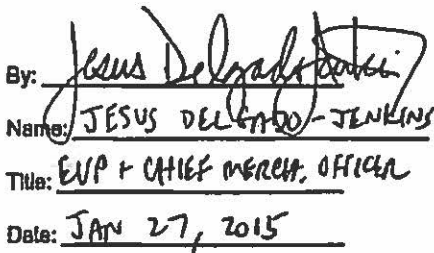 By: Jesus Delgado-Jenkins
Name: JESUS DELGADO-JENKINS
Title: EVP + CHIEF MERCH. OFFICER
Date: JAN 27, 2015